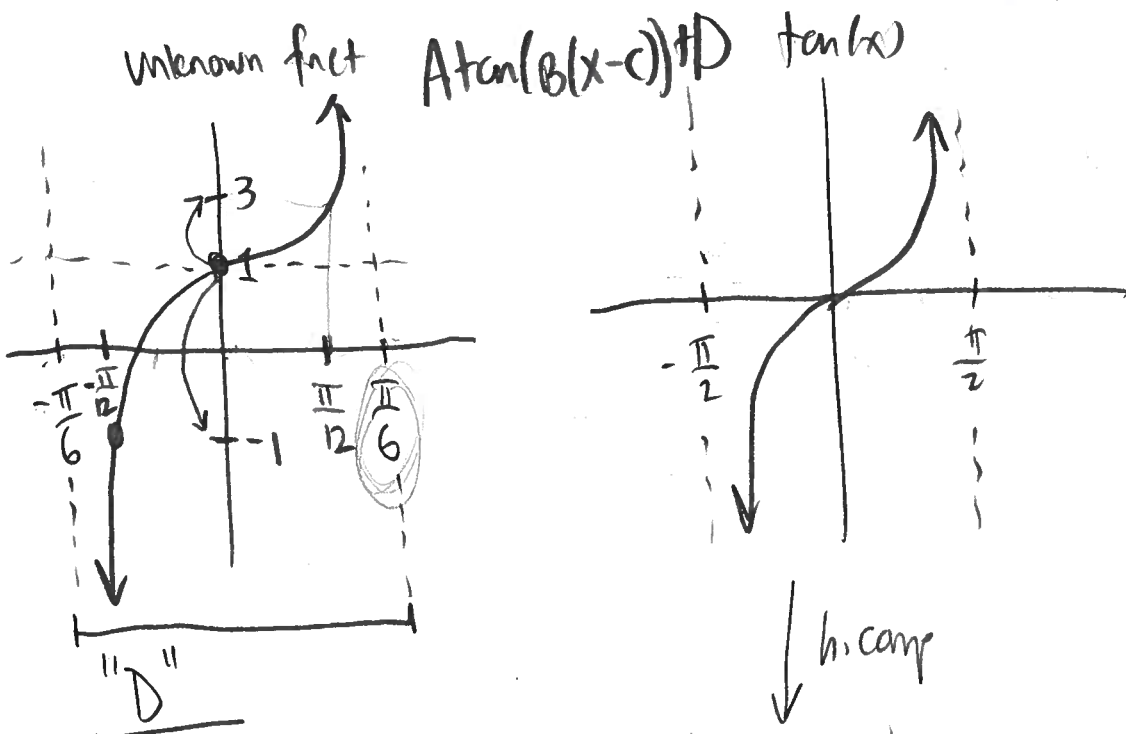 unknown fnct A tan(B(x-C))+D tan(x)
3
1
-π/6 -π/12 π/12 π/6
-1
-π/2 π/2
"D"
h. comp